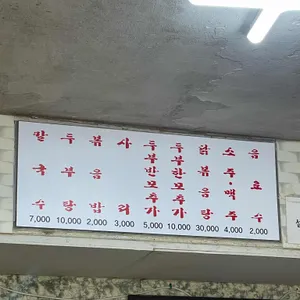 칼국수 7,000
두탕 10,000
볶음밥 2,000
사리 3,000
두부반모추가 5,000
두부한모추가 10,000
닭볶음탕 30,000
소주·맥주 4,000
음료수 2,000